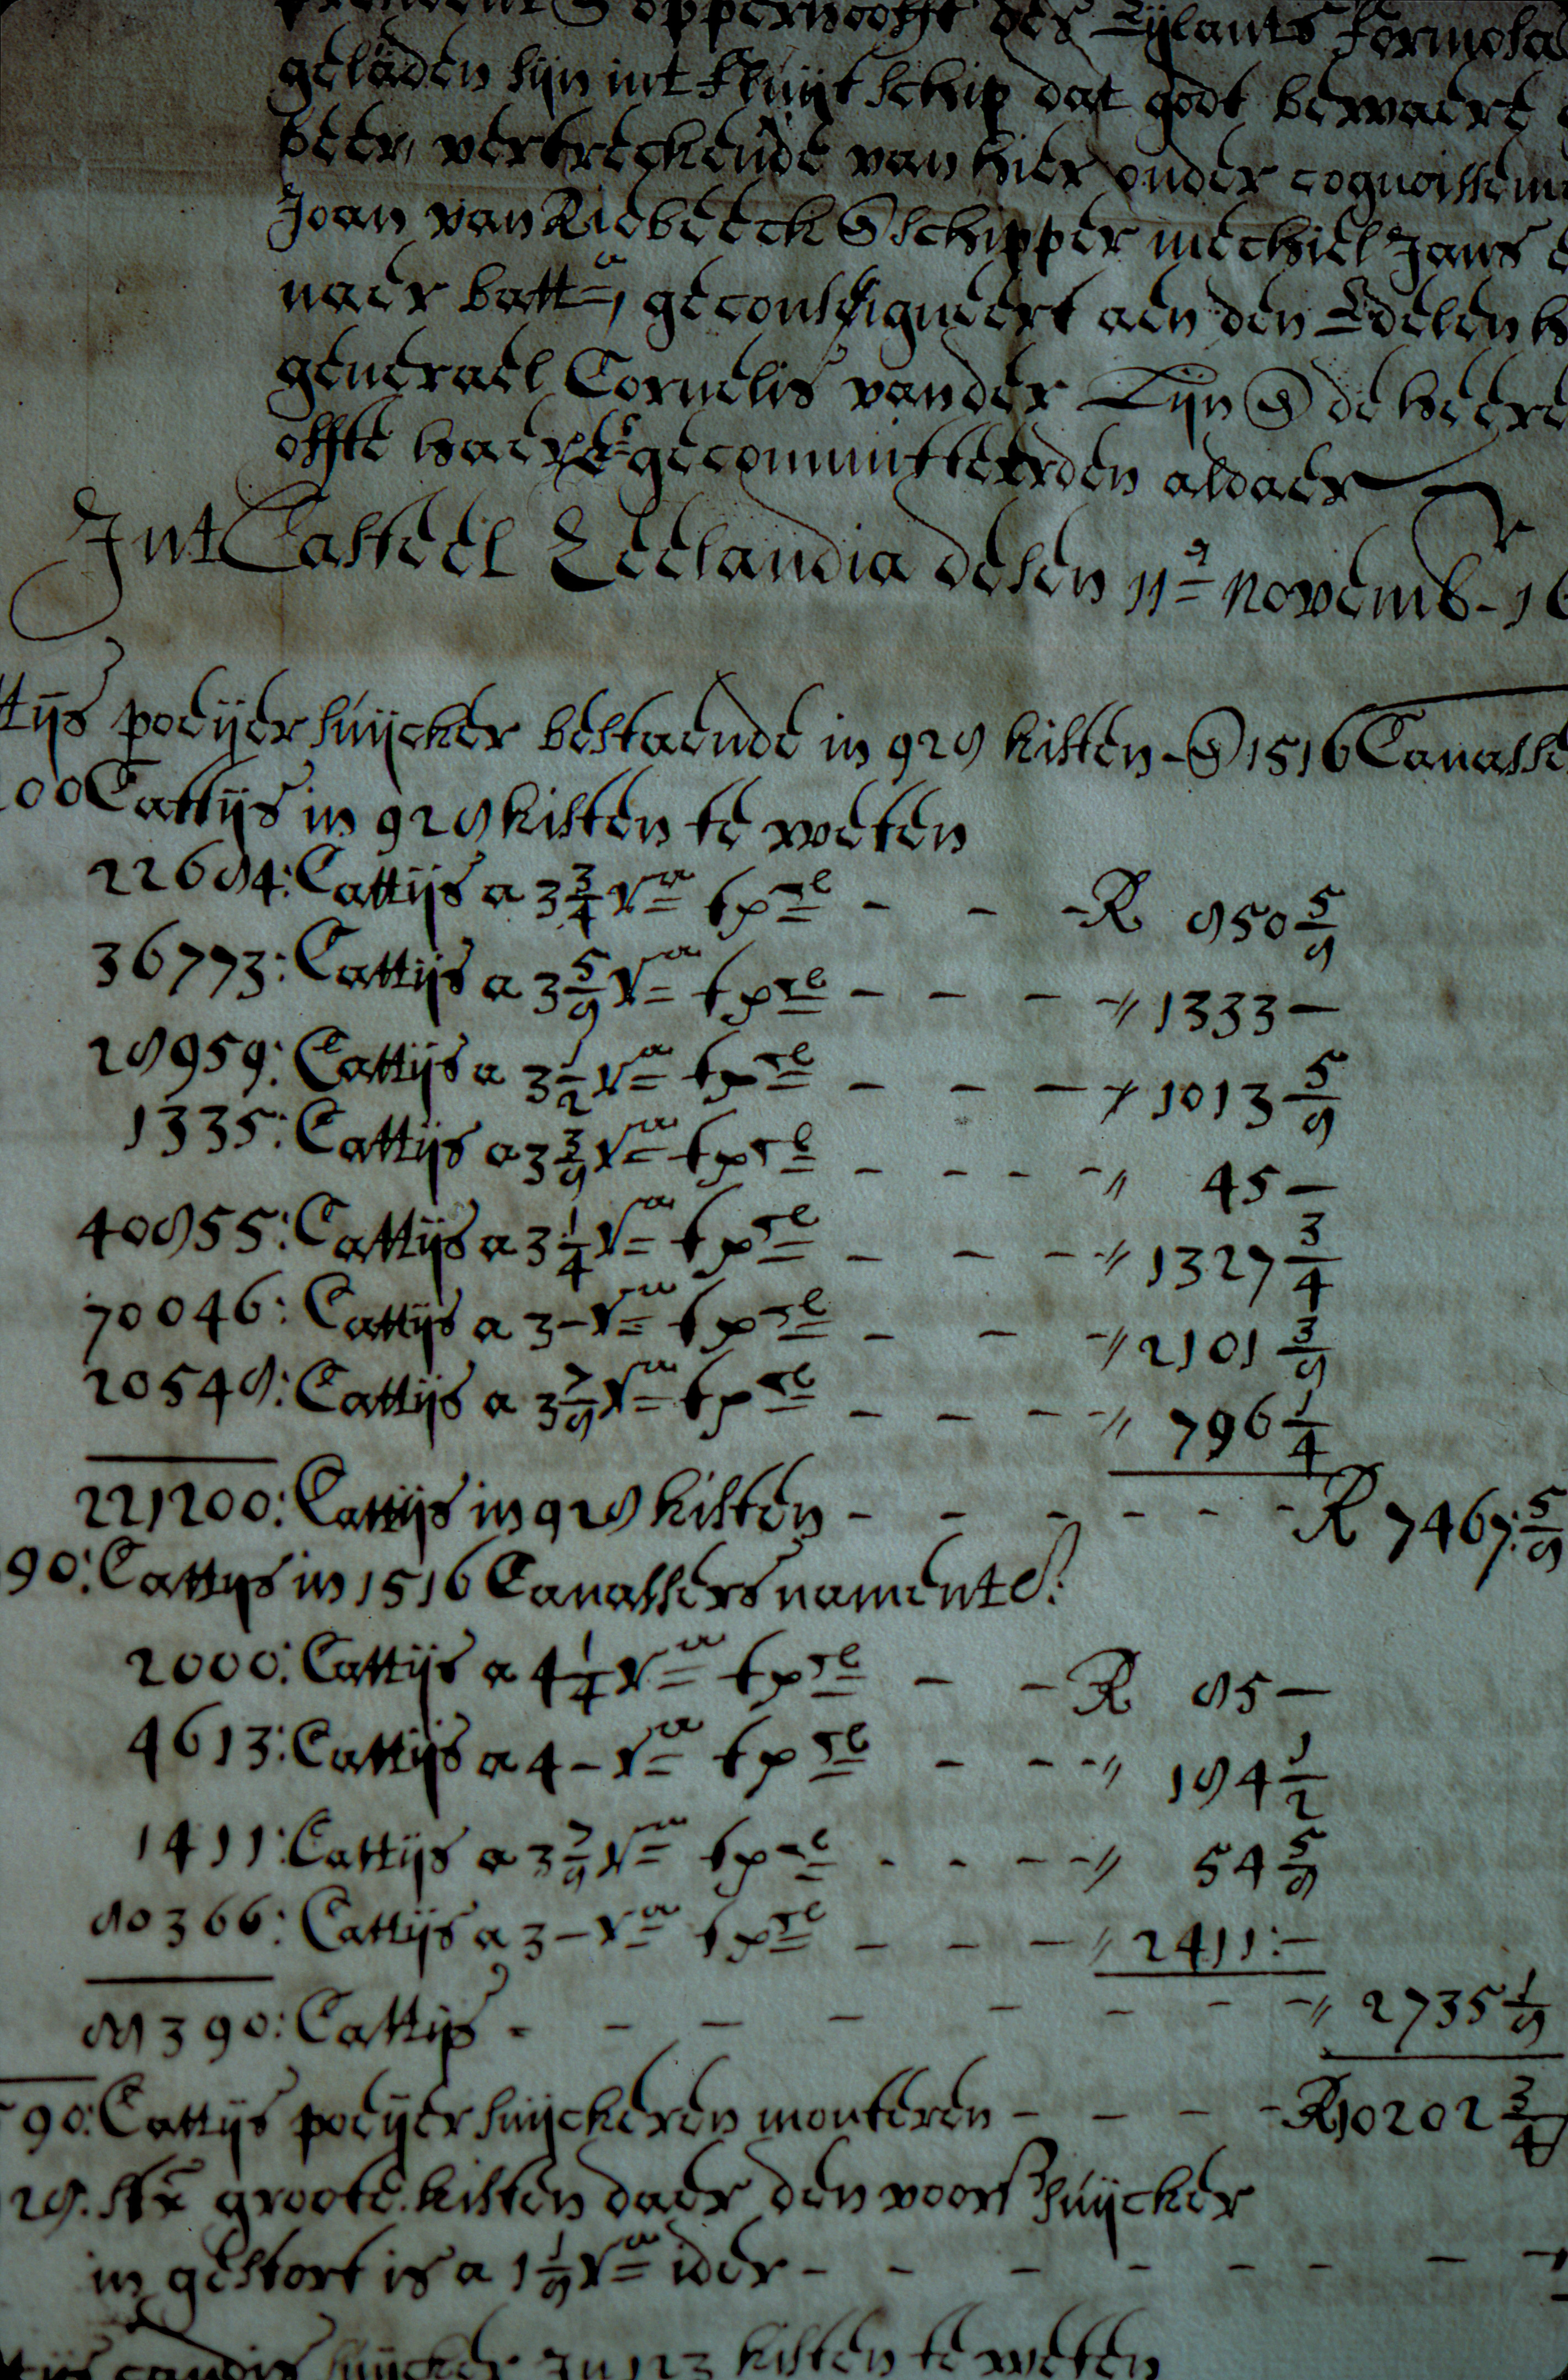 president & opperhooft des Eijlants Formosa
geladen sijn int fluijtschip dat godt bewaere
beer, vertreckende van hier onder cognoissem
Joan van Riebeeck & schipper mechiel Jans
naer batt=a, geconsigneert aen den Edelen h
generael Cornelis vander Lijn & de heere
offte haer E:s gecommitteerden aldaer
Int Casteel Zeelandia desen 11=n Novemb-r 16
ttijs poeijersuijcker bestaende in 928 kisten - & 1516 Canasse
00 Cattijs in 928 kisten te weten
22684: Cattijs a 3 3/4 ra t pcl - - - R 850 5/8
36773: Cattijs a 3 5/8 ra t pcl - - - - " 1333 -
28959: Cattijs a 3 1/2 ra t pcl - - - " 1013 5/8
1335: Cattijs a 3 3/8 ra t pcl - - - - " 45 -
40855: Cattijs a 3 1/4 ra t pcl - - - " 1327 3/4
70046: Cattijs a 3 - ra t pcl - - - " 2101 3/8
20548: Cattijs a 3 7/8 ra t pcl - - - - " 796 1/4
221200: Cattijs in 928 kisten - - - - - - R 7467: 5/8
90: Cattijs in 1516 Canassers namentl:
2000: Cattijs a 4 1/4 ra t pcl - - R 85 -
4613: Cattijs a 4 - ra t pcl - - - " 184 1/2
1411: Cattijs a 3 7/8 ra t pcl - - - - " 54 5/8
80366: Cattijs a 3 - ra t pcl - - - " 2411: -
88390: Cattijs - - - - - - - - " 2735 1/8
90: Cattijs poeijersuijckeren monteren - - - - R 10202 3/4
28. stx groote kisten daer den voors suijcker
in gestort is a 1 1/8 ra ider - - - - - - - -
ttijs candij suijcker In 123 kisten te weten